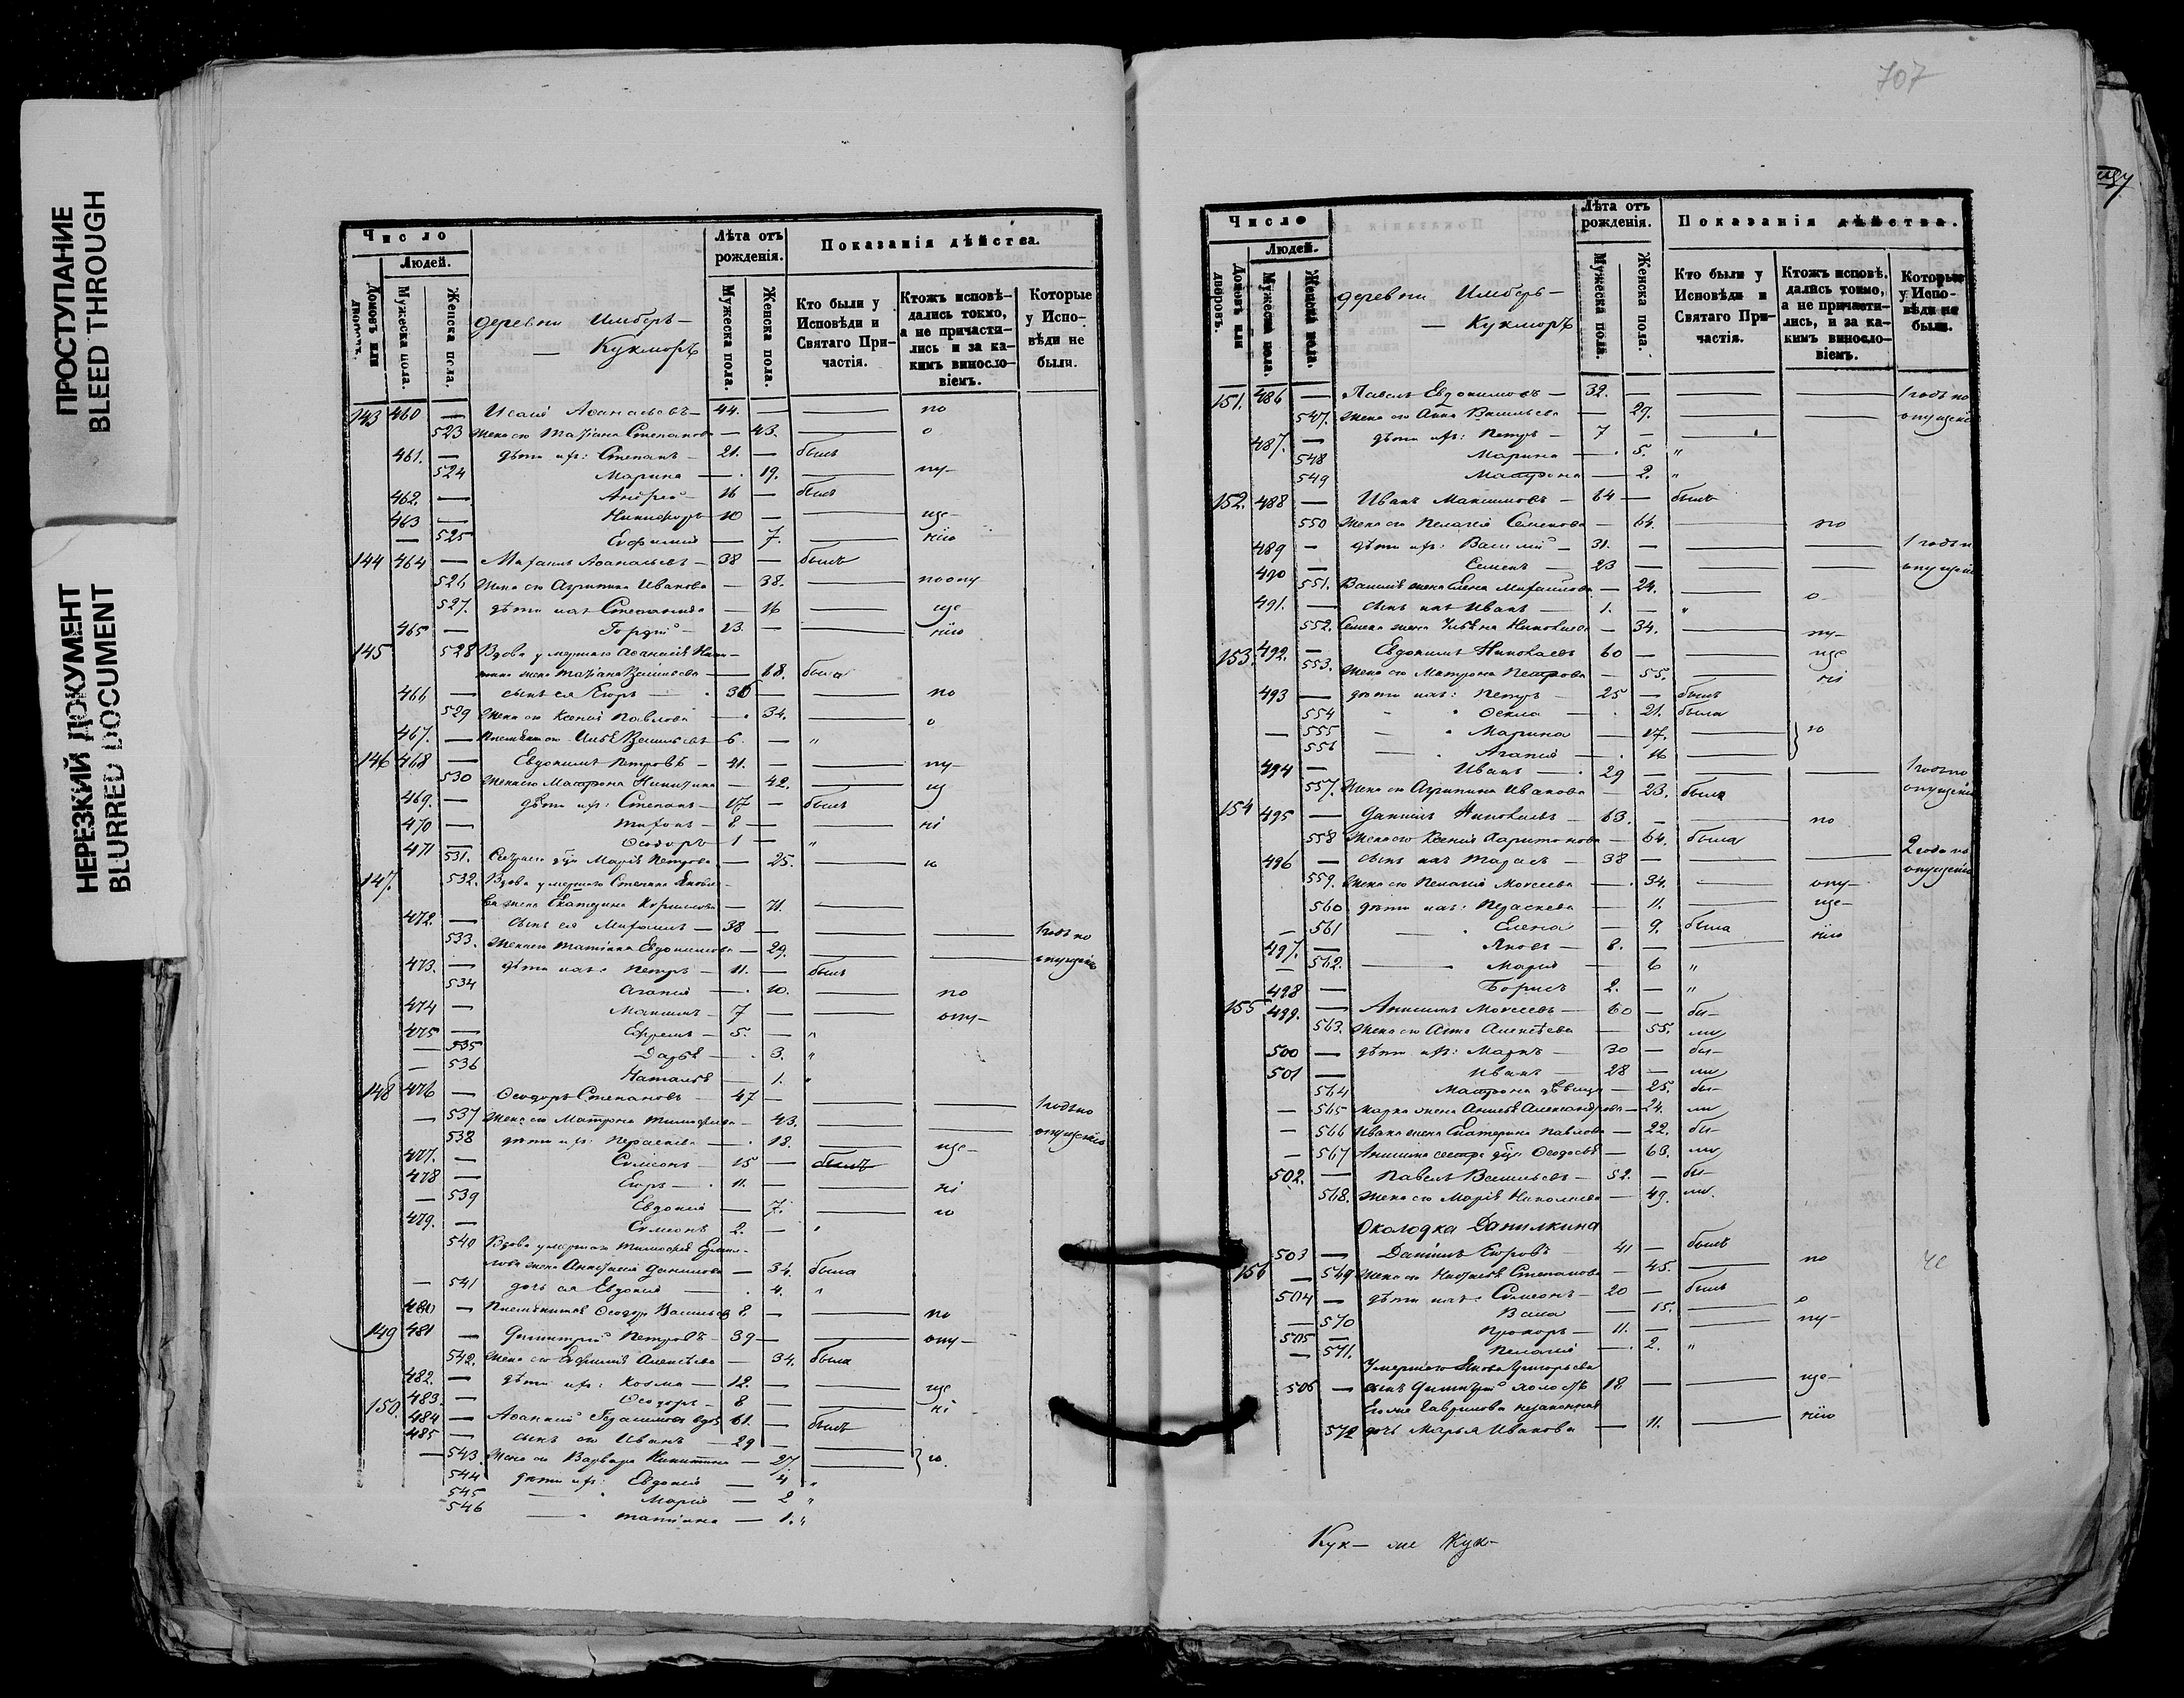 ПРОСТУПАНИЕ
BLEED THROUGH
НЕРЕЗКИЙ ДОКУМЕНТ
BLURRED DOCUMENT
Число
Людей.
Домовъ или дворовъ.
Мужеска пола.
Женска пола.
деревни Имберь-
— Кукморъ
Лѣта отъ рожденія.
Мужеска пола.
Женска пола.
Показанія дѣйства.
Кто были у Исповѣди и Святаго Причастія.
Ктожъ исповѣдались токмо, а не причастились и за какимъ винословіемъ.
Которые у Исповѣди не были.
143 460 — Исаій Аѳанасьевъ — 44. — — по
523 Жена его Татіана Степанова — 43. — о
461. — дѣти ихъ: Степанъ — 21. — былъ
524 Марина — 19. — пу-
462. — Андрей — 16 — былъ
463 — Никифоръ — 10 — — ще-
— 525 Евфимія — 7. — нію
144 464 — Михаилъ Аѳанасьевъ — 38 — былъ
526 Жена его Агрипина Иванова — 38. — по опу
527. дѣти ихъ Степанида — 16 — ще-
465 — Гордій — 13. — — нію
145 528 Вдова умершаго Аѳанасія
жена Татіана Васильева — 68. была
466 — сынъ ея Егоръ — 36 — — по
529 Жена его Ксенія Павлова — 34. — о
467. — Илья Васильевъ — 6. — "
146 468 — Евдокимъ Петровъ — 41. — — пу-
530 Жена его Матрона Никитина — 42. — щ
469. — дѣти ихъ: Степанъ — 17 — былъ
470 — Тихонъ — 8 — — ні
471 — Ѳеодоръ — 1 — "
531. Марія Петрова — 25. — ю
147. 532. Вдова умершаго Степана Яковле-
ва жена Екатерина — 71. —
472. — сынъ ея Михаилъ — 38 — — — 1 годъ по
533. Жена его Татіана Евдокимова — 29. — — опущенію
473. — дѣти ихъ: Петръ — 11. — былъ
534 Агапія — 10. — по
474 — Максимъ — 7 — — опу-
475 — Ефремъ — 5. — "
— 535 Дарья — 3. "
— 536 Наталья — 1. "
148 476 — Ѳеодоръ Степановъ — 47 — — — 1 годъ по
— 537 Жена его Матрона Тимофеева — 43. — — опущенію
538 дѣти ихъ: Параскева — 18. — ще-
477. — Симеонъ — 15 — былъ
478 — Егоръ — 11. — — ні
— 539 Евдокія — 7. — ю
479. — Симеонъ 2. — "
540 Вдова умершаго Тимофея
жена Анастасія Данилова — 34. была
— 541 дочь ея Евдокія — 4. "
480 — Ѳеодоръ Васильевъ 8. — — по
149 481 — Димитрій Петровъ — 39 — — опу-
542. Жена его Евфимія Алексѣева — 34. была
482. — дѣти ихъ: Козма — 12. — — ще
483. — Ѳеодоръ — 8 — — ні
150. 484 — Аѳанасій Герасимовъ вдовъ 61. — былъ
485 — сынъ его Иванъ — 29 — —
— 543. Жена его Варвара Никитина — 27 — } ю.
544 дѣти ихъ: Евдокія — 4 "
545 — Марія — 2 "
546 — Татіана — 1. "
707
Число
Людей.
Домовъ или дворовъ.
Мужеска пола.
Женска пола.
деревни Имберь-
— Кукморъ
Лѣта отъ рожденія.
Мужеска пола.
Женска пола.
Показанія дѣйства.
Кто были у Исповѣди и Святаго Причастія.
Ктожъ исповѣдались токмо, а не причастились, и за какимъ винословіемъ.
Которые у Исповѣди не были.
151. 486 — Павелъ Евдокимовъ — 32. — — — 1 годъ по
547. Жена его Анна Васильева — 27. — — опущенію
487. — дѣти ихъ: Петръ — 7 — —
548 Марина — 5. "
549 Матрона — 2. "
152. 488 — Иванъ Максимовъ — 64 — былъ
550 Жена его Пелагія Семенова — 64. — по
489 — дѣти ихъ: Василій — 31. — — — 1 годъ п
490 — Семенъ — 23 — — — опущенію
551. Василія жена Елена Михаилова — 24. — о-
491. — сынъ ихъ Иванъ — 1. — "
552. Семена жена Ульяна Николаева — 34. — пу-
153. 492. — Евдокимъ Николаевъ 60 — — ще
553. Жена его Матрона Петрова — 55. — ні
493 — дѣти ихъ: Петръ — 25 — былъ
554 Ѳекла — 21. была
— 555 Марина — 17. — } ю
556 Агапія — 16 —
494 — Иванъ — 29 — — — 1 годъ по
557. Жена его Агрипина Иванова — 23. была опущенію
154 495 — Даніилъ Николаевъ — 63. — — по
558 Жена его Ксенія Харитонова — 64. была
496 — сынъ ихъ Тарасъ — 38 — — — 2 года по опущенію
559. Жена его Пелагія Моисеева — 34. — опу-
560 дѣти ихъ: Параскева — 11. — ще-
— 561 Елена — 9. была
497. — Яковъ — 8. — — нію
— 562. Марія — 6 "
498 — Борисъ 2. — "
155 499. — Анисимъ Моисеевъ — 60 — бы-
563. Жена его Анна Алексѣева — 55. ли
500 — дѣти ихъ: Маркъ — 30 — бы-
501 — Иванъ — 28 — ли
564 Матрона дѣвица — 25. бы-
— 565 Марка жена Анисья Александрова — 24. ли
— 566 Ивана жена Екатерина Павлова — 22. бы-
— 567 Анисима сестра Ѳеодосья — 63. ли
502. — Павелъ Васильевъ — 52. — бы-
568. Жена его Марія Николаева — 49. ли.
Околодка Данилкина
156 503 — Даніилъ Егоровъ 41 — былъ
— 569 Жена его Наталья Степанова — 45. — по
504 — дѣти ихъ: Симеонъ — 20 — былъ
— 570 Васса — 15. — о
505 — Прохоръ — 11. — — пу-
— 571. Пелагія — 2. "
Умершаго Якова Григорьева
506 — сынъ Димитрій холостъ 18. — — ще-
Гаврилова незаконная
572 дочь Марья Иванова — 11. — нію
Кук- же Кук-